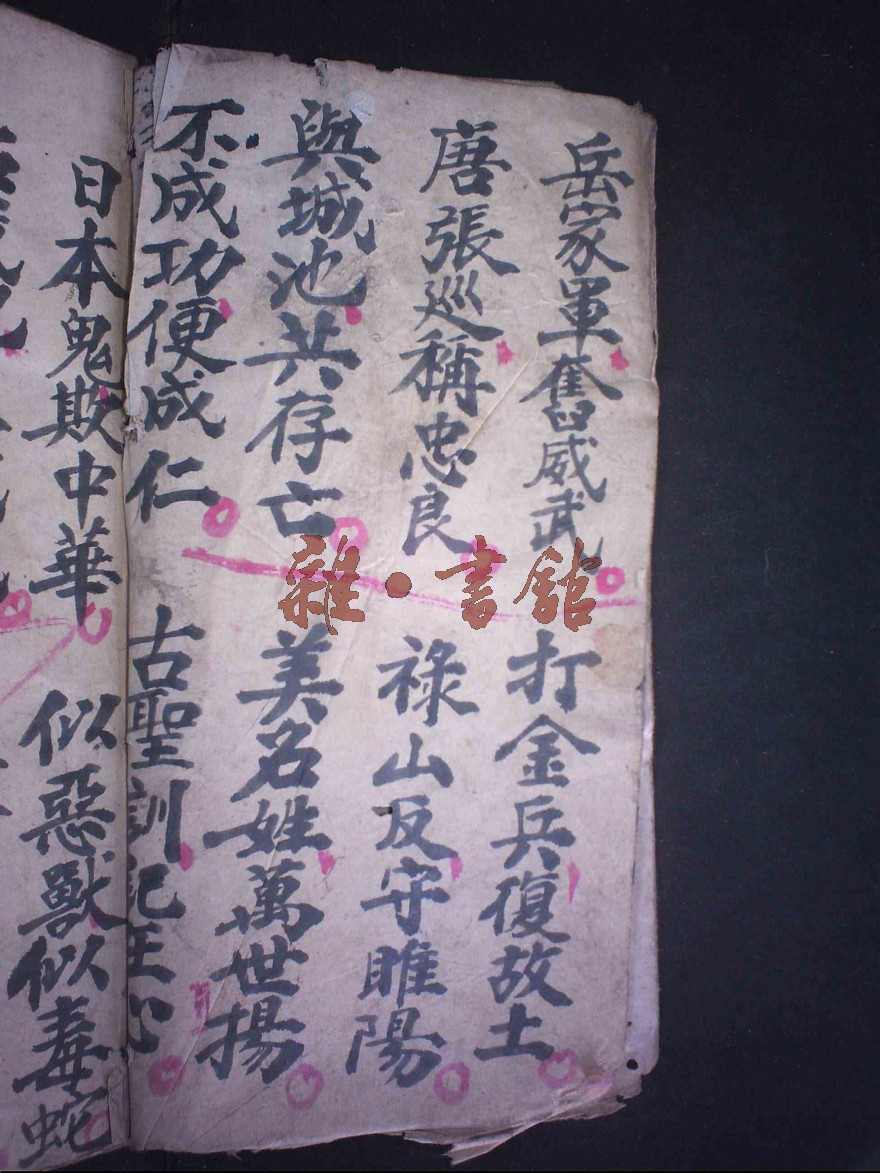 岳家軍奮威武 打金兵復故土
唐張巡稱忠良 祿山反守睢陽
與城池共存亡 美名姓萬世揚
不成功便成仁 古聖訓記在心
日本鬼欺中華 似惡獸似毒蛇
雜·書館